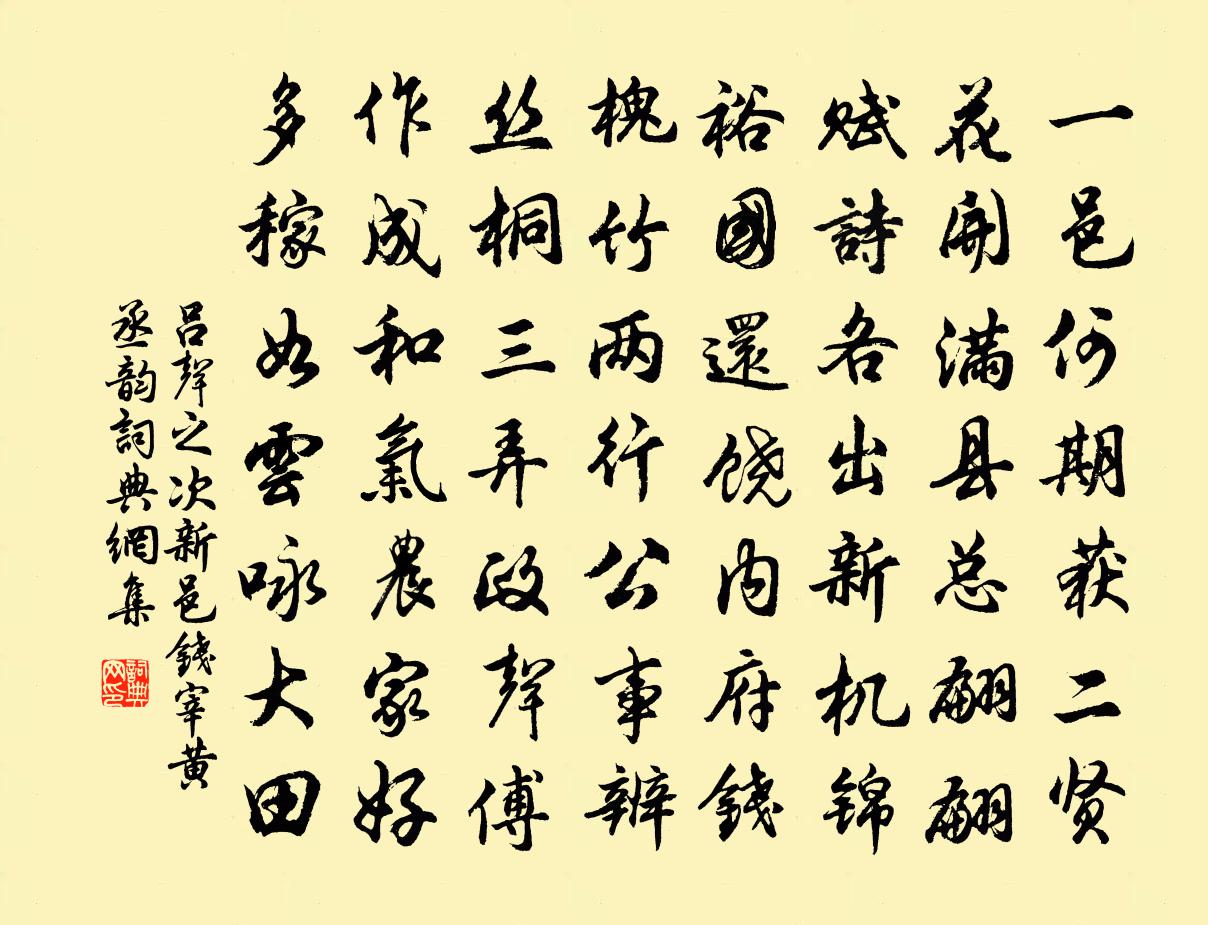 一邑何期获二贤
花開满县总翩翩
赋詩各出新机锦
裕國還饶内府錢
槐竹两行公事辦
丝桐三弄政聲傅
作成和氣農家好
多稼如雲咏大田
吕聲之次新邑錢宰黄
丞韵詞典網集
詞典网印